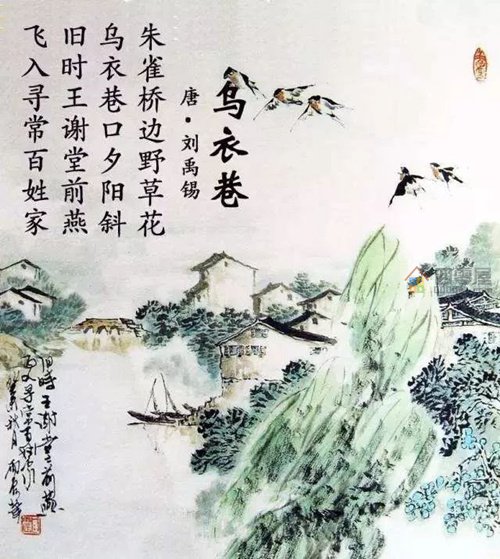 乌衣巷
唐·刘禹锡
朱雀桥边野草花
乌衣巷口夕阳斜
旧时王谢堂前燕
飞入寻常百姓家
旧时王谢堂前燕
飞入寻常百姓家